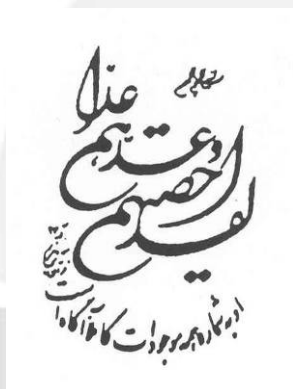 لقد احصیهم
و عدهم
عدا
او به شماره همه موجودات کاملاً آگاه است